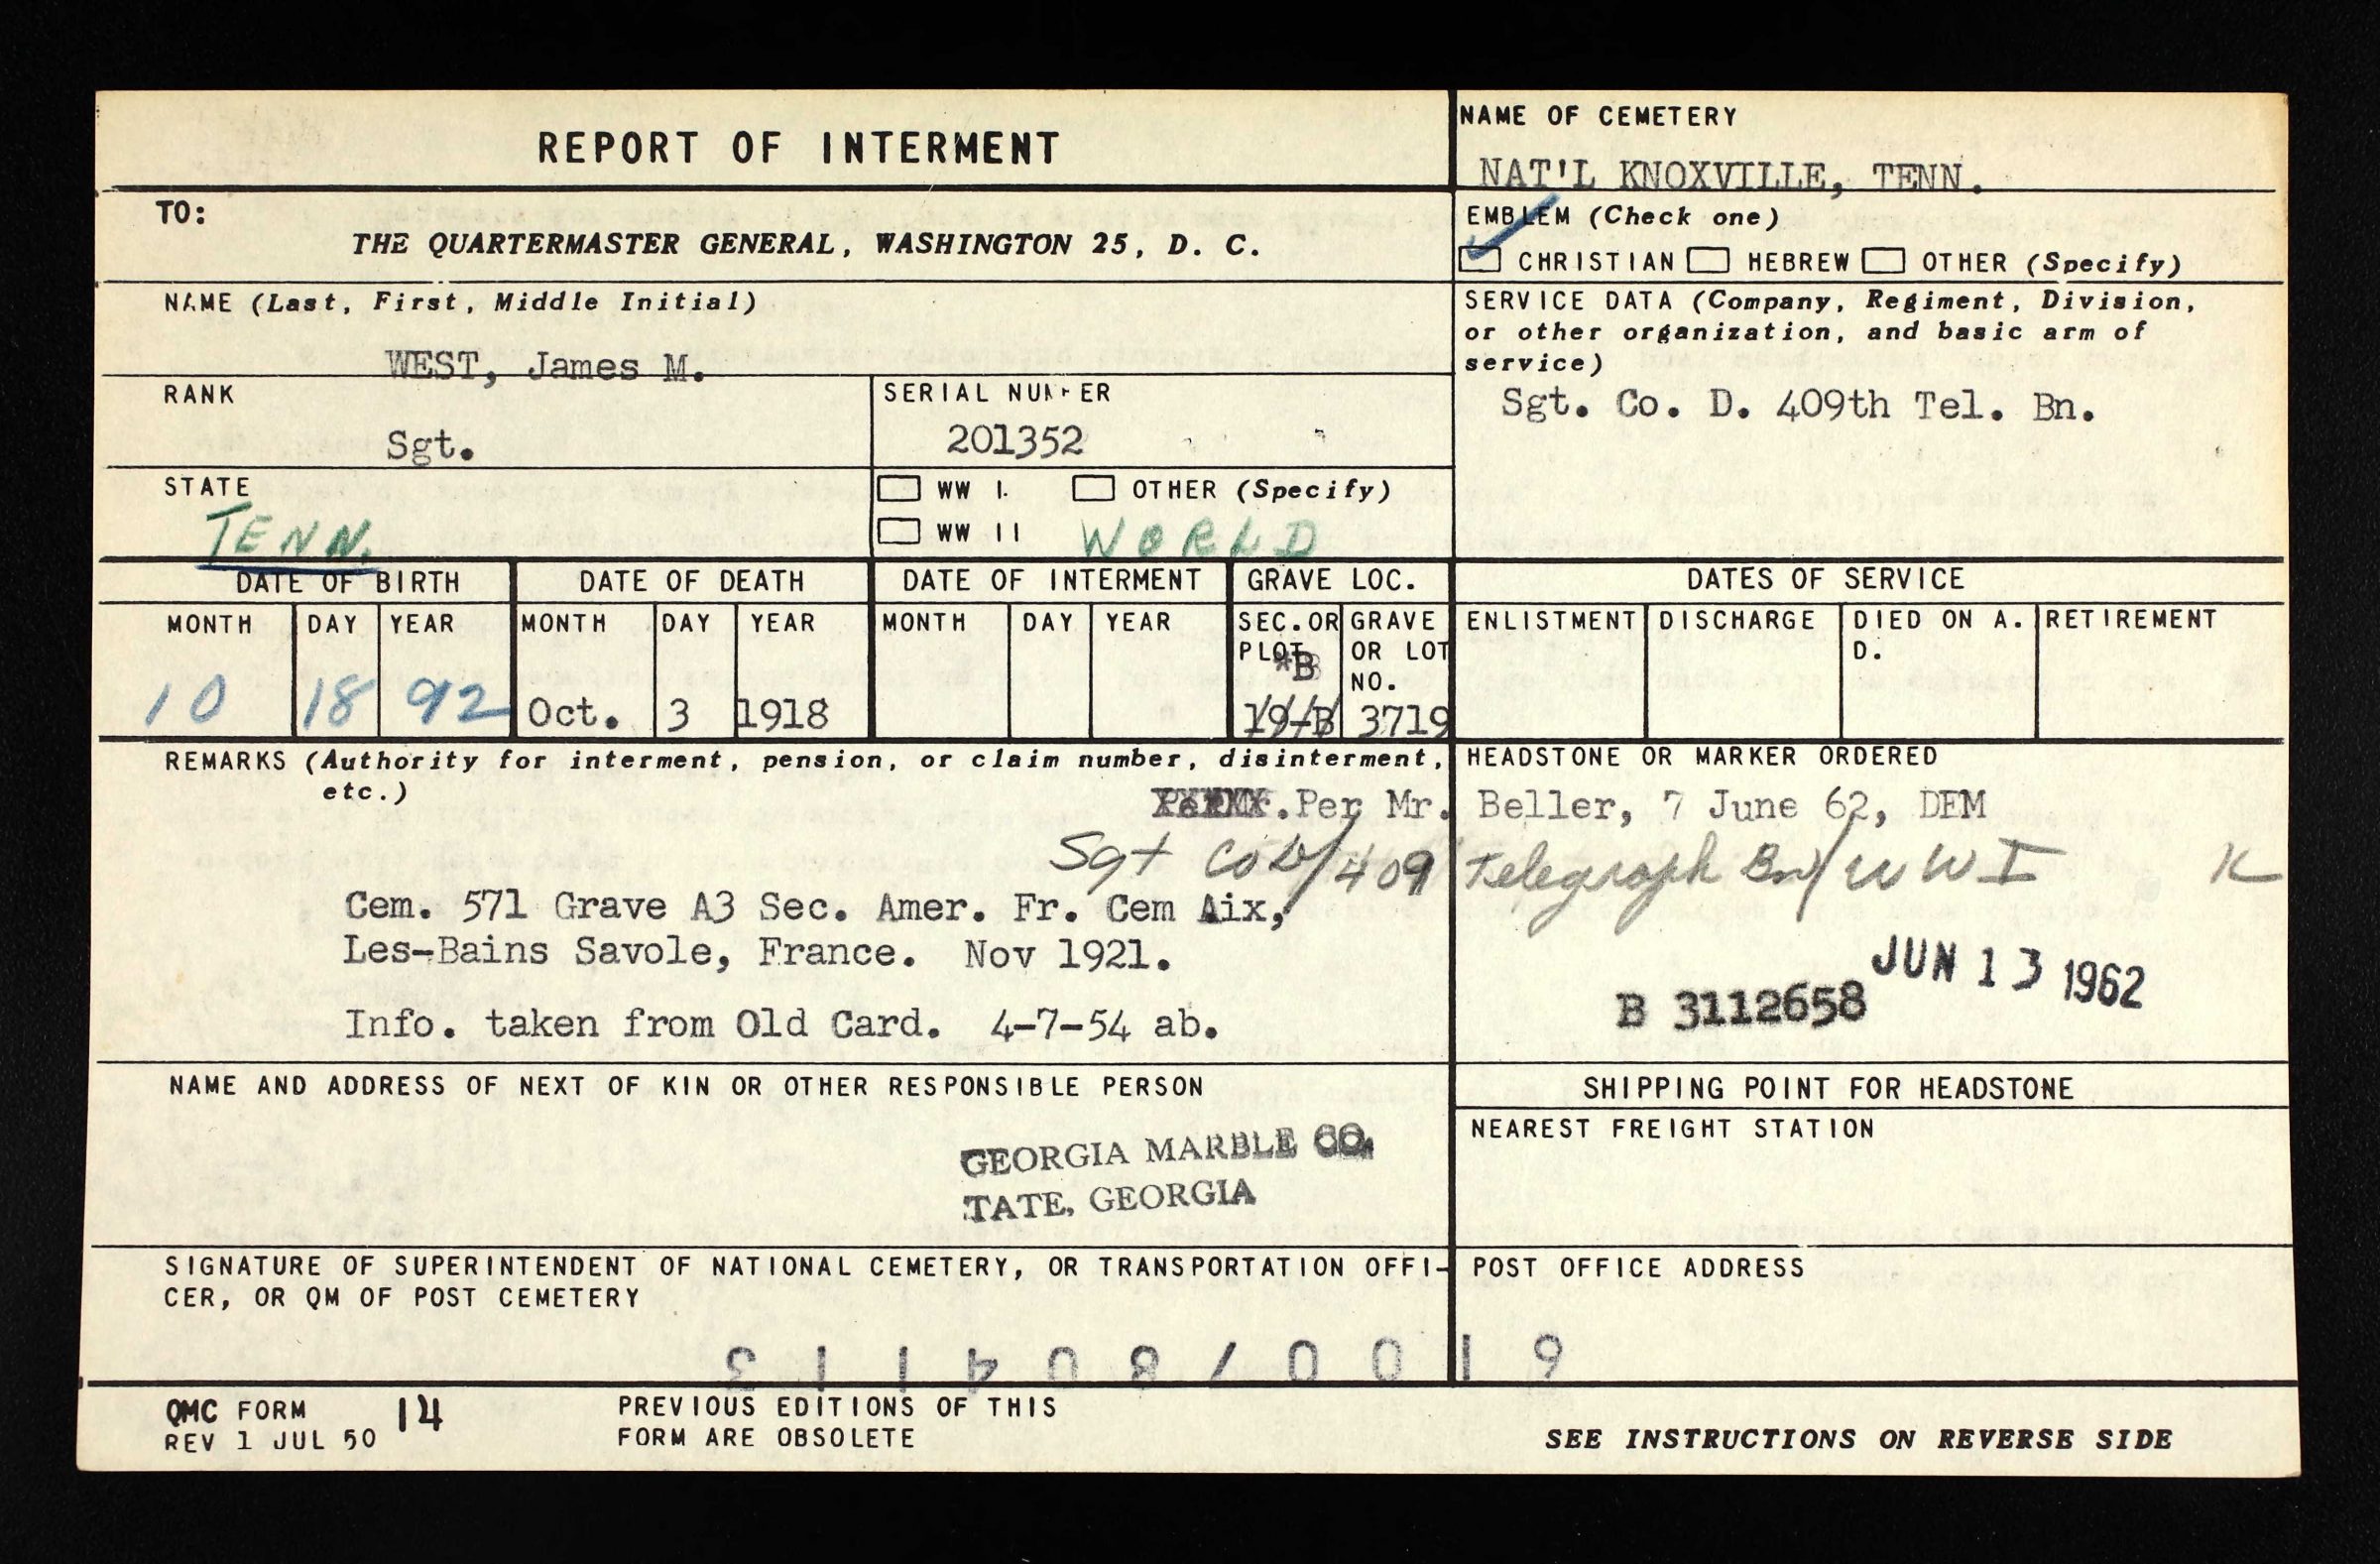 REPORT OF INTERMENT
NAME OF CEMETERY
NAT'L KNOXVILLE, TENN.
TO:
THE QUARTERMASTER GENERAL, WASHINGTON 25, D. C.
EMBLEM (Check one)
CHRISTIAN HEBREW OTHER (Specify)
NAME (Last, First, Middle Initial)
WEST, James M.
SERVICE DATA (Company, Regiment, Division,
or other organization, and basic arm of
service)
Sgt. Co. D. 409th Tel. Bn.
RANK
Sgt.
SERIAL NUMBER
201352
STATE
TENN.
WW I. OTHER (Specify)
WW II WORLD
DATE OF BIRTH DATE OF DEATH DATE OF INTERMENT GRAVE LOC. DATES OF SERVICE
MONTH DAY YEAR MONTH DAY YEAR MONTH DAY YEAR SEC. OR PLOT GRAVE OR LOT NO. ENLISTMENT DISCHARGE DIED ON A. D. RETIREMENT
*B
10 18 92 Oct. 3 1918 19-B 3719
REMARKS (Authority for interment, pension, or claim number, disinterment,
etc.)
HEADSTONE OR MARKER ORDERED
Per Mr. Beller, 7 June 62, DEM
Sgt Co D/409 Telegraph Bn/WWI K
Cem. 571 Grave A3 Sec. Amer. Fr. Cem Aix,
Les-Bains Savole, France. Nov 1921.
JUN 13 1962
B 3112658
Info. taken from Old Card. 4-7-54 ab.
NAME AND ADDRESS OF NEXT OF KIN OR OTHER RESPONSIBLE PERSON
SHIPPING POINT FOR HEADSTONE
NEAREST FREIGHT STATION
GEORGIA MARBLE CO.
TATE, GEORGIA
SIGNATURE OF SUPERINTENDENT OF NATIONAL CEMETERY, OR TRANSPORTATION OFFI-
CER, OR QM OF POST CEMETERY
POST OFFICE ADDRESS
6100/804113
QMC FORM 14
REV 1 JUL 50
PREVIOUS EDITIONS OF THIS
FORM ARE OBSOLETE
SEE INSTRUCTIONS ON REVERSE SIDE